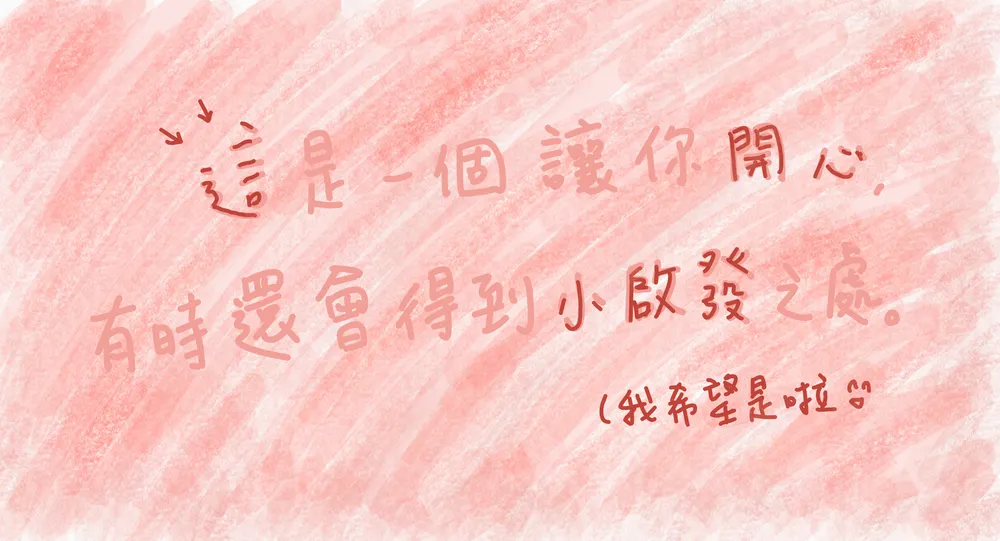 這是一個讓你開心,
有時還會得到小啟發之處。
(我希望是啦